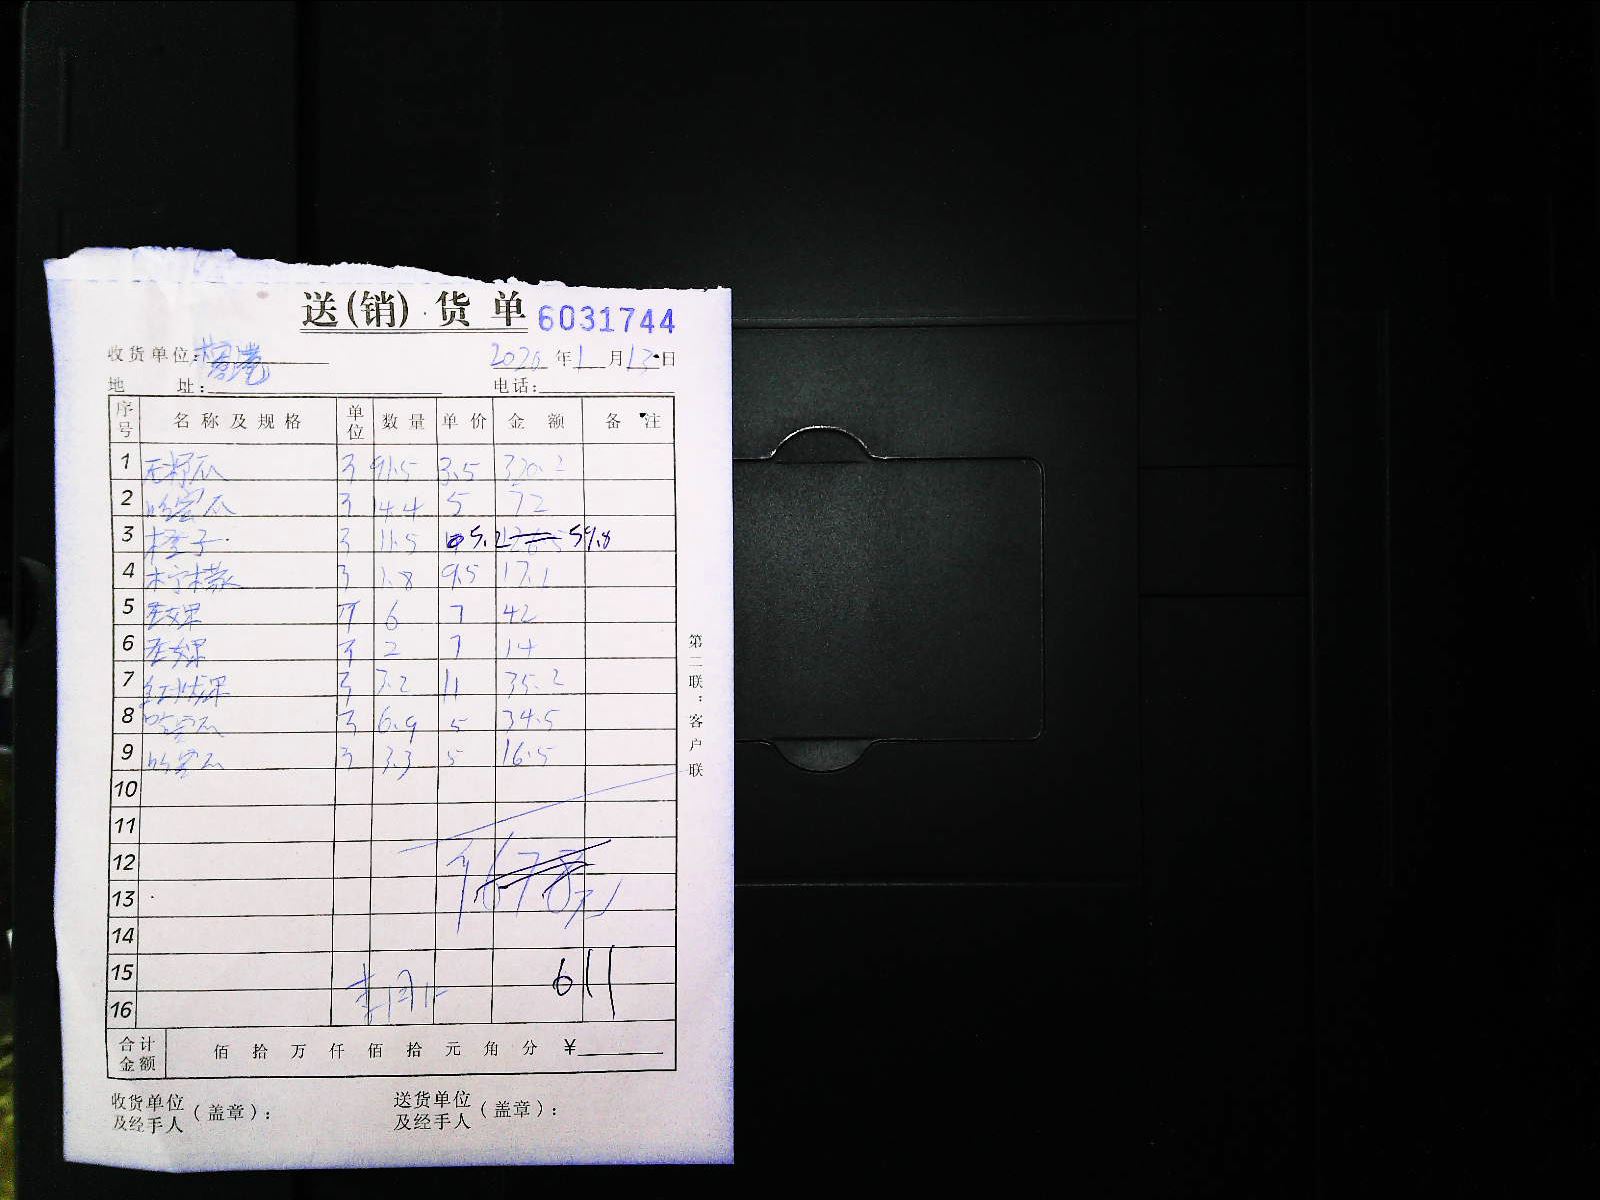 送(销)货单 6031744
收货单位: 2020年1月13日
地 址: 电话:
序号 名称及规格 单位 数量 单价 金额 备注
1 无籽瓜 斤 91.5 3.5 320.2
2 哈密瓜 斤 14.4 5 72
3 橙子 斤 11.5 5.2 59.8
4 柠檬 斤 1.8 9.5 17.1
5 圣女果 斤 6 7 42
6 圣女果 斤 2 7 14
7 斤 3.2 11 35.2
8 哈密瓜 斤 6.9 5 34.5
9 哈密瓜 斤 3.3 5 16.5
10
11
12
13
14
15 611
16
合计金额 佰 拾 万 仟 佰 拾 元 角 分 ¥
收货单位及经手人(盖章): 送货单位及经手人(盖章):
第二联:客户联